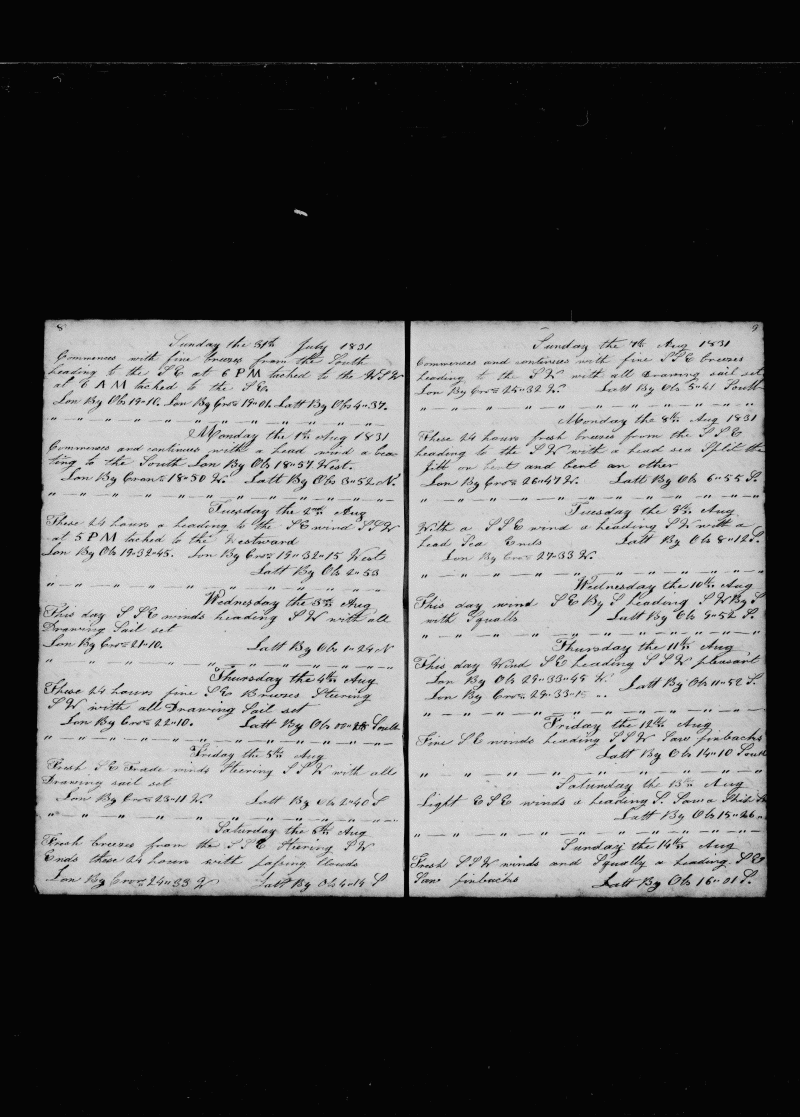 8
Sunday the 31th July 1831
Commences with fine breezes from the South
heading to the SE at 6 PM tacked to the WSW
at 6 AM tacked to the SE.
Lon By Obs 19-10. Lon By Cro 19"01. Latt By Obs 4"37.
Monday the 1th Aug 1831
Commences and continues with a head wind a bea-
ting to the South Lon By Ob 18"57 West.
Lon By Cron 18"50 W. Latt By Obs 3"52 N.
Tuesday the 2th Aug
These 24 hours a heading to the SE wind SSW
at 5 PM tacked to the Westward
Lon By Obs 19-32-45. Lon By Cro 19"32"15 West
Latt By Ob 2"53
Wednesday the 3th Aug
This day SSE winds heading SW with all
Drawing Sail set
Lon By Cro 21-10. Latt By Ob 1"24 N
Thursday the 4th Aug
These 24 hours fine SE Breezes Steering
SW with all Drawing Sail set
Lon By Cro 22"10. Latt By Ob South
Friday the 5th Aug
Fresh SE Trade winds Steering SSW with all
Drawing sail set
Lon By Cro 23"11 W. Latt By Ob 2"40 S
Saturday the 6th Aug
Fresh breezes from the SSE Steering SW
Ends these 24 hours with passing clouds
Lon By Cro 24"33 W Latt By Ob 4"14 S
9
Sunday the 7th Aug 1831
Commences and continues with fine SSE breezes
heading to the SW with all drawing sail set
Lon By Cro 25"32 W. Latt By Ob 5"41 South
Monday the 8th Aug 1831
These 24 hours fresh breezes from the SSE
heading to the SW with a head sea Split the
jibb on bent and bent an other
Lon By Cro 26"47 W. Latt By Ob 6"55 S.
Tuesday the 9th Aug
With a SSE wind a heading SW with a
head Sea Ends Latt By Ob 8"12 S.
Lon By Cro 27-33 W.
Wednesday the 10th Aug
This day wind SE By S heading SW By S
with Squalls Latt By Ob 9"52 S.
Thursday the 11th Aug
This day Wind SE heading SSW pleasant
Lon By Ob 29"33"45 W.
Lon By Cro 29"33"15 " Latt By Ob 11"52 S.
Friday the 12th Aug
Fine SE winds heading SSW Saw finbacks
Latt By Ob 14"10 South
Saturday the 13th Aug
Light ESE winds a heading S. Saw a Ship
Latt By Ob 15"26 "
Sunday the 14th Aug
Fresh SSW winds and Squally a heading SE
Saw finbacks Latt By Ob 16"01 S.